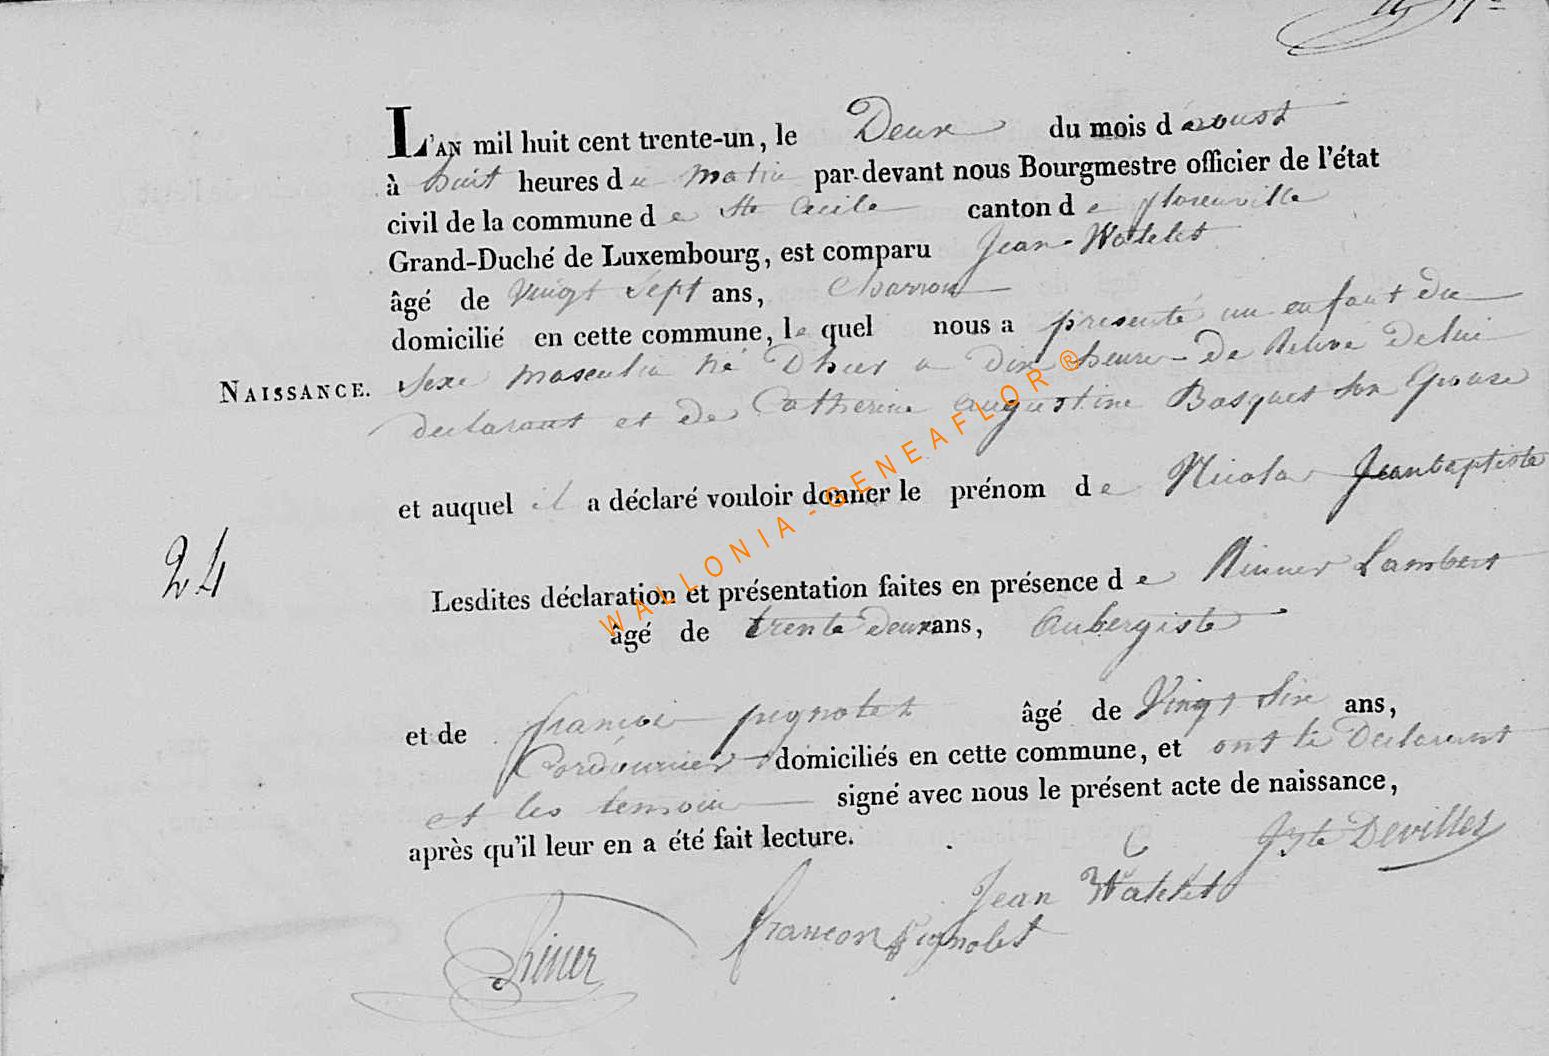 L'AN mil huit cent trente-un, le Deux du mois d'aoust
à huit heures du matin par-devant nous Bourgmestre officier de l'état
civil de la commune de Ste Cecile canton de florenville
Grand-Duché de Luxembourg, est comparu Jean Watelet
âgé de vingt sept ans, Charron
domicilié en cette commune, lequel nous a presenté un enfant du
NAISSANCE. sexe masculin né Dhier a dix heure De Delui
declarant et de Catherine augustine Basquet Son Epouse
et auquel il a déclaré vouloir donner le prénom de Nicolas Jeanbaptiste
24
Lesdites déclaration et présentation faites en présence de Lambert
âgé de trente Deux ans, Aubergiste
et de françoi pignolet âgé de Vingt Six ans,
Cordonnier domiciliés en cette commune, et ont le Declarant
et les temoin signé avec nous le présent acte de naissance,
après qu'il leur en a été fait lecture.
Devillez
Jean Watelet
francois pignolet
WALLONIA-GENEAFLOR®